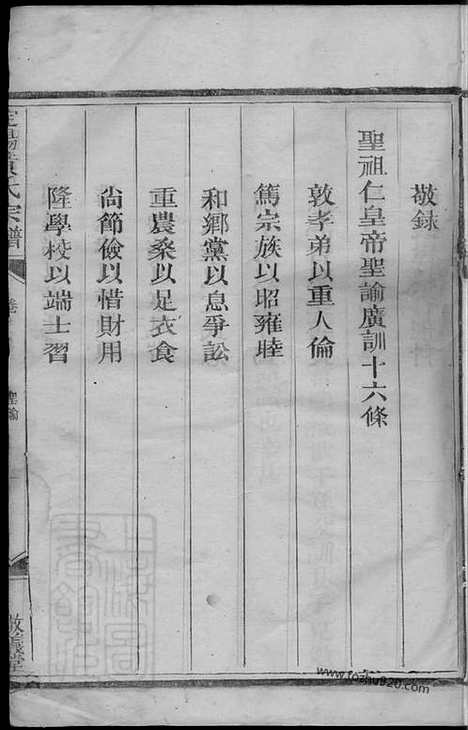 敬錄
聖祖仁皇帝聖諭廣訓十六條
敦孝弟以重人倫
篤宗族以昭雍睦
和鄉黨以息爭訟
重農桑以足衣食
尙節儉以惜財用
隆學校以端士習
黃氏宗譜
卷
聖諭
敬義堂
www.tozhu920.com